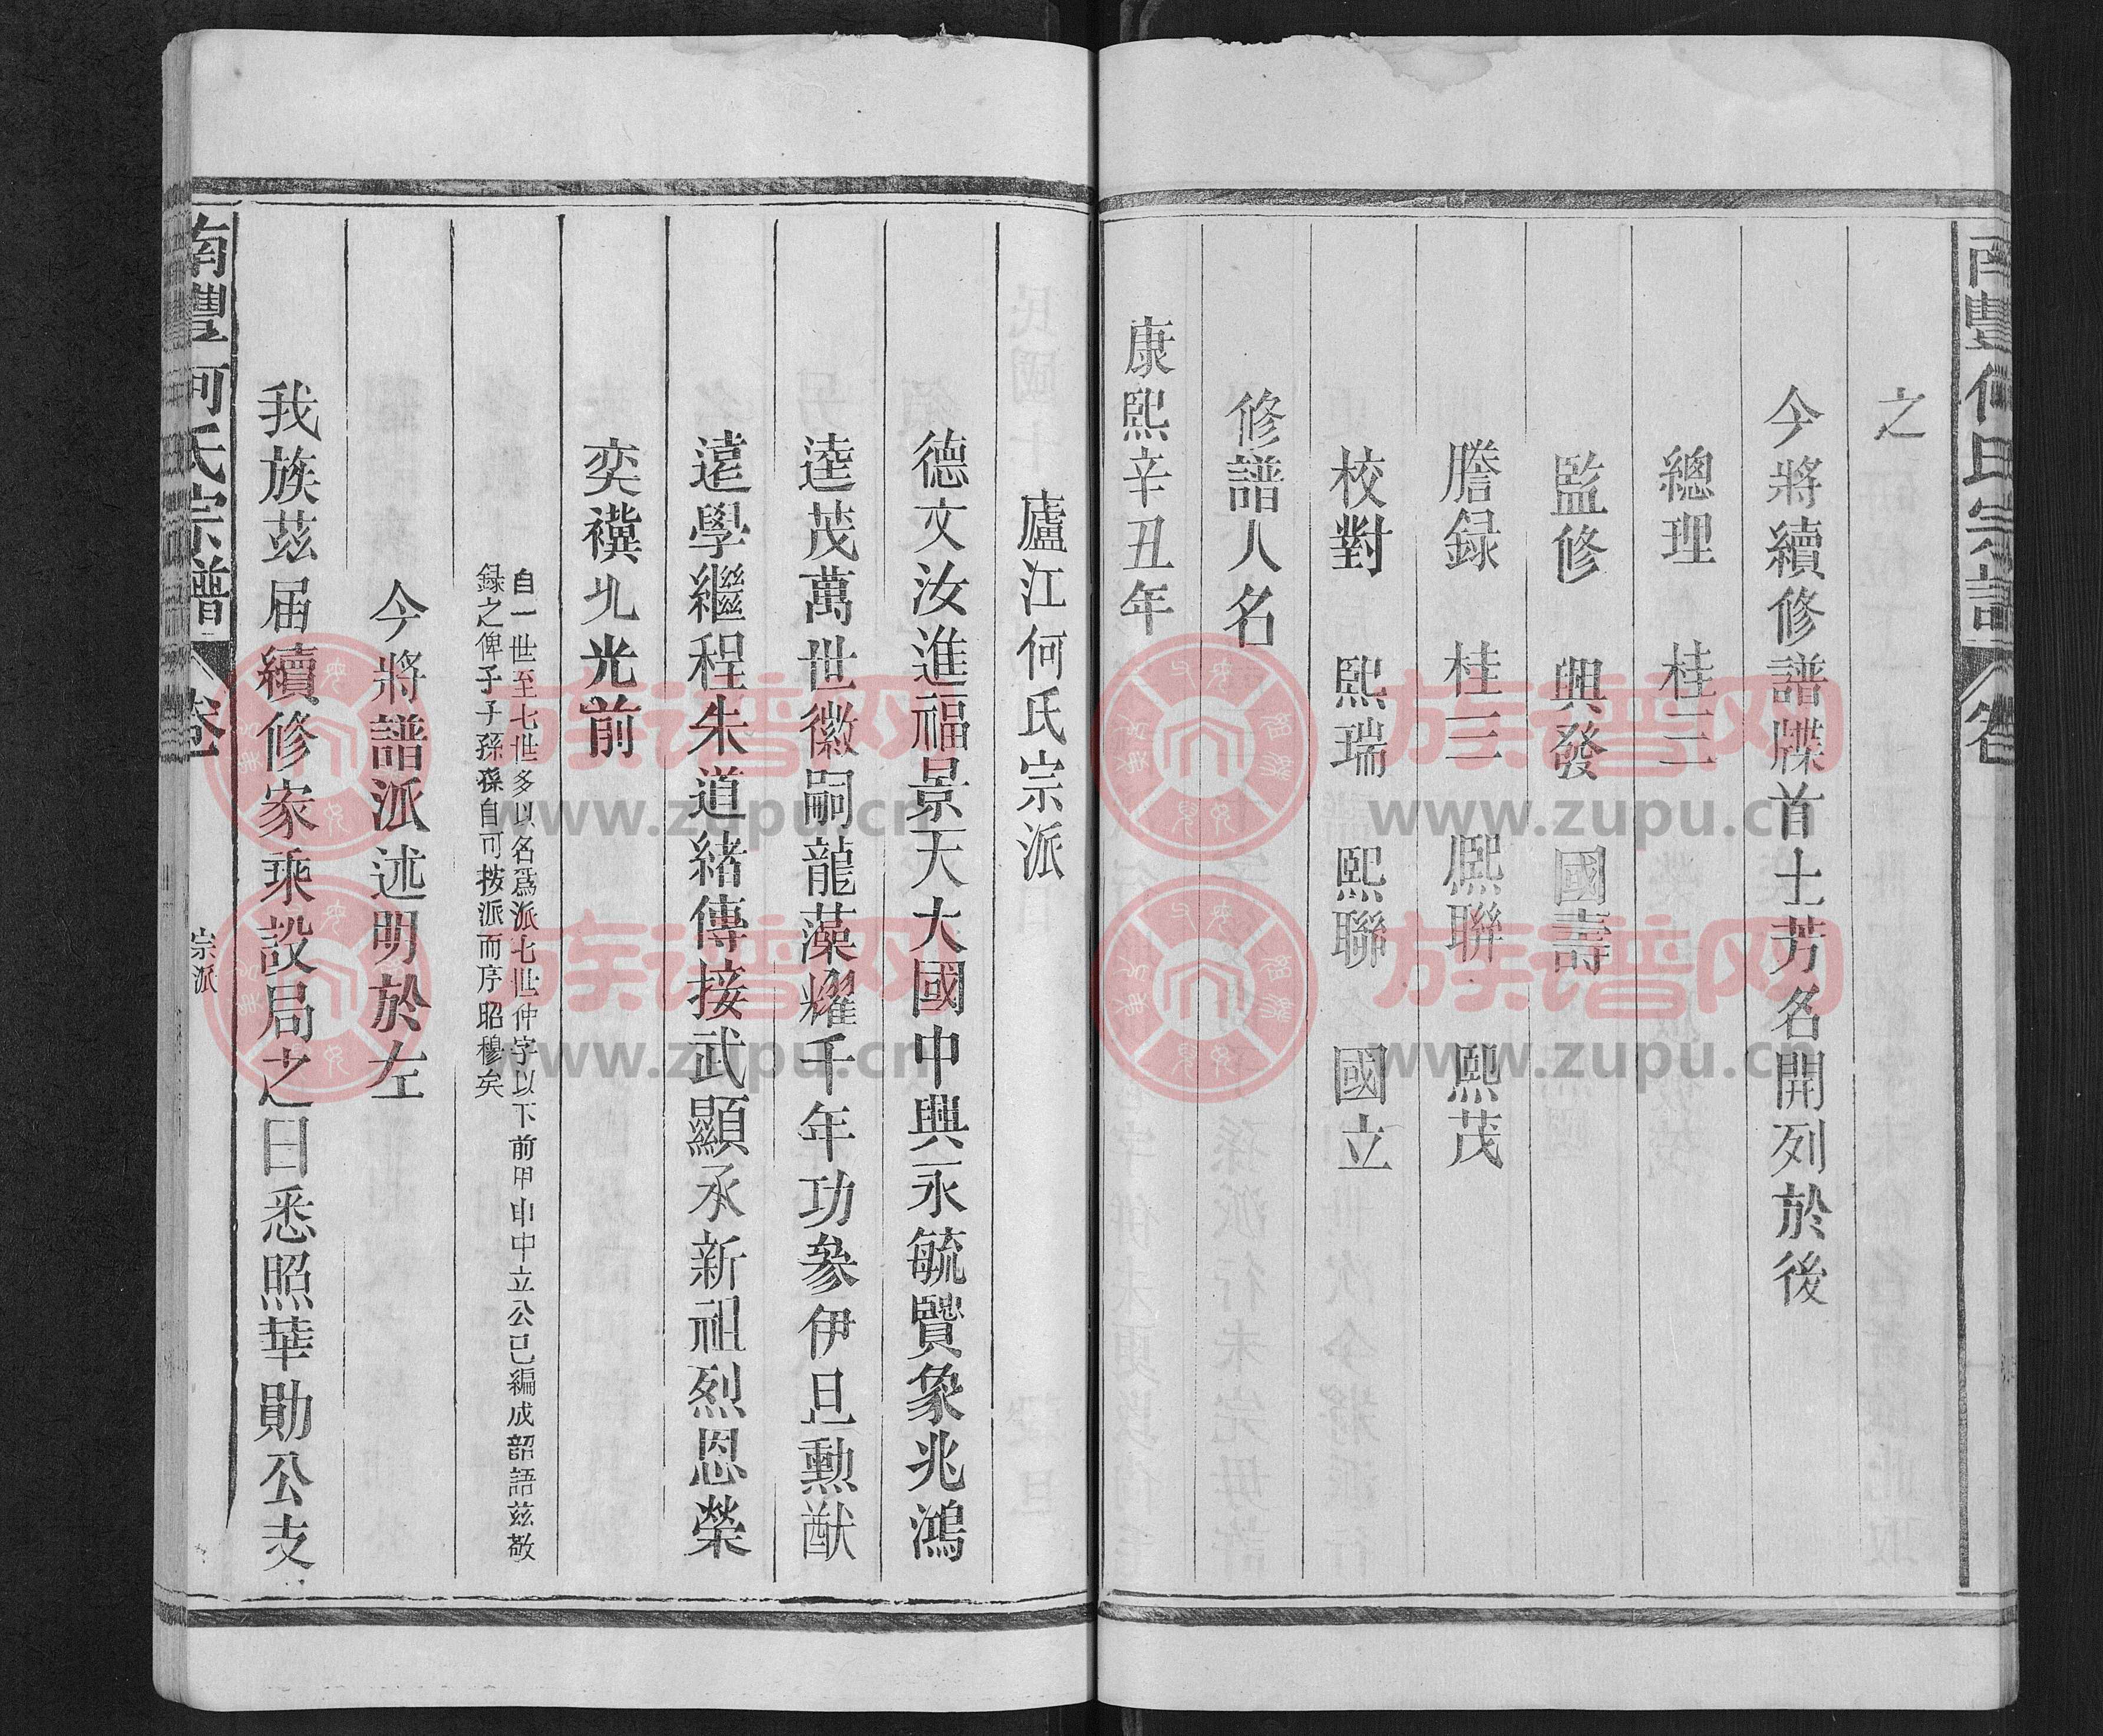 南豐何氏宗譜
卷
之
今將續修譜牒首士芳名開列於後
總理 桂三
監修 興發 國壽
謄録 桂三 熙聯 熙茂
校對 熙瑞 熙聯 國立
修譜人名
康熙辛丑年
廬江何氏宗派
德文汝進福景天大國中興永毓賢象兆鴻
逵茂萬世徽嗣龍藻耀千年功參伊旦勳猷
遠學繼程朱道緒傳接武顯承新祖烈恩榮
奕禩丕光前
自一世至七世多以名爲派七世仲字以下前甲申中立公已編成韶語茲敬
録之俾子子孫孫自可按派而序昭穆矣
今將譜派述明於左
我族茲届續修家乘設局之日悉照華勛公支
南豐何氏宗譜
卷
宗派
族谱网
www.zupu.cn
族谱网
www.zupu.cn
族谱网
www.zupu.cn
族谱网
www.zupu.cn